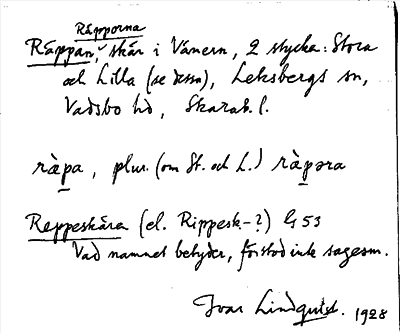 Räpporna
Räppan, skär i Vänern, 2 stycka: Stora
och Lilla (se dessa), Leksbergs sn,
Vadsbo hd, Skarab. l.
ràpa, plur. (om St. och L.) ràpəra
Reppeskära (el. Rippesk-?) G 53
Vad namnet betyder, förstod inte sagesm.
Ivar Lindquist. 1928